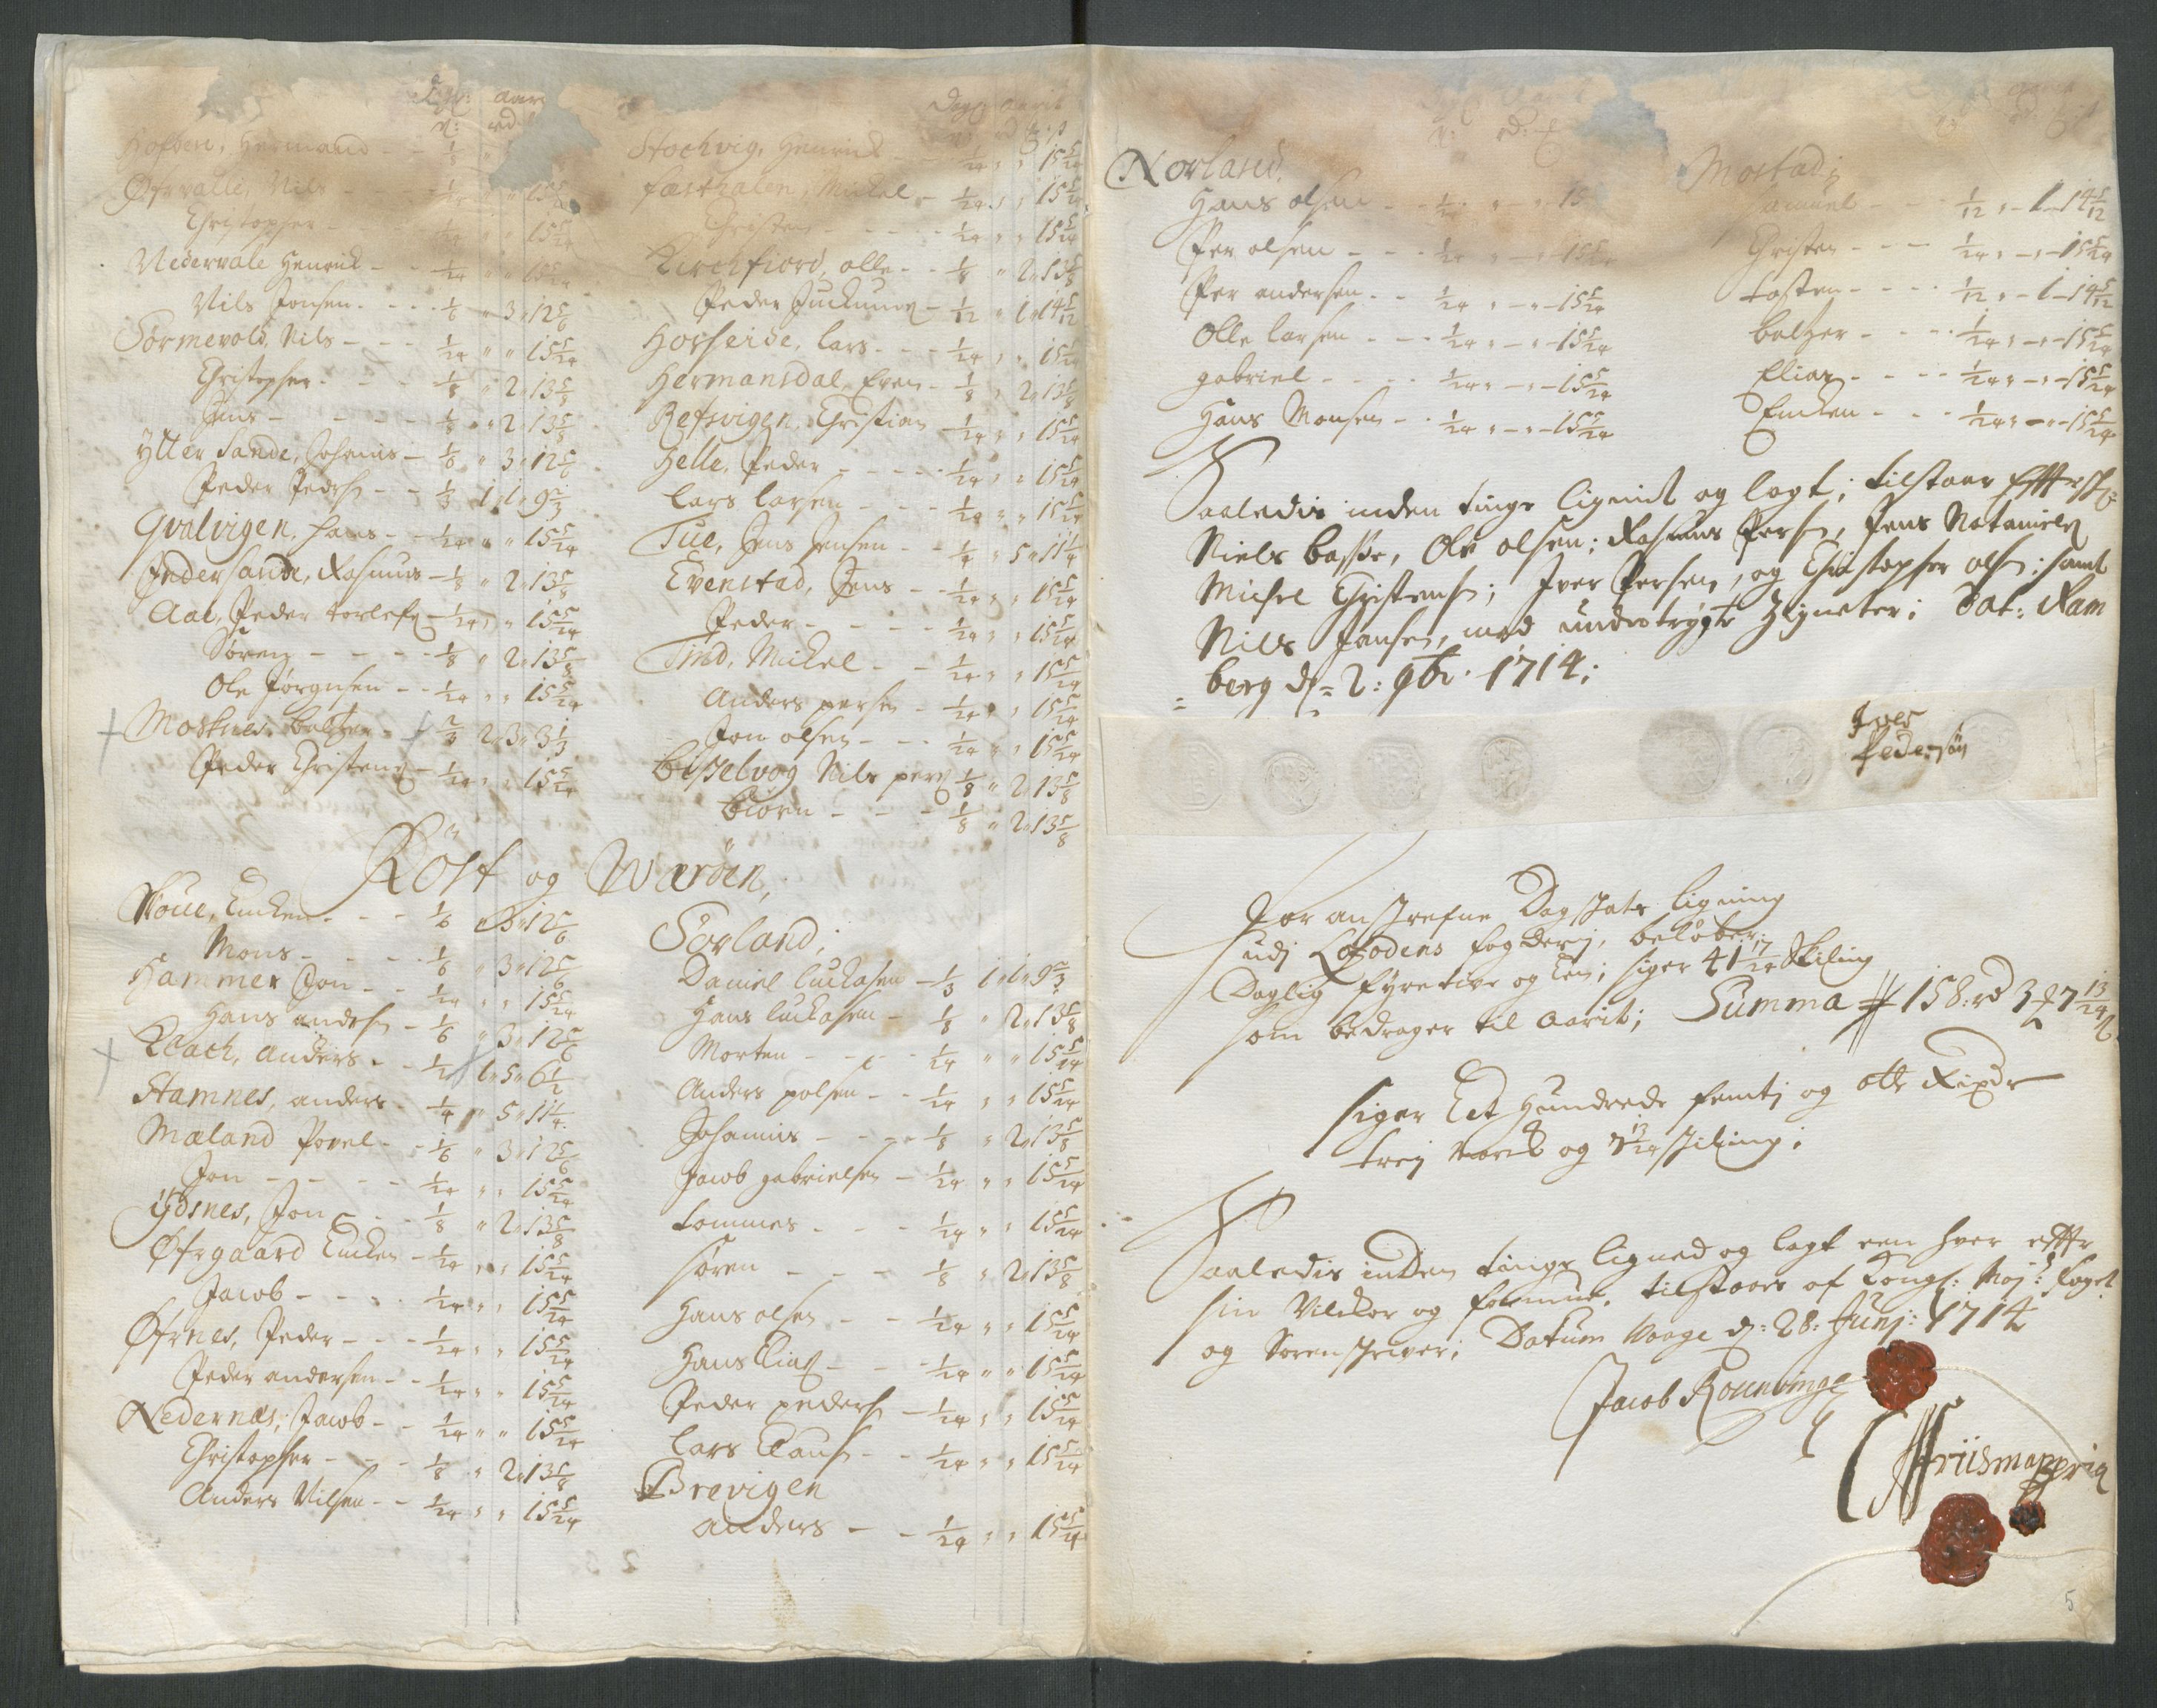 Aarl
Hofden, Hermand - - 1/8
Øfrvalle, Nils - - - 1/24 " " 15 5/24
Christopher - - - 1/24 " " 15 5/24
Nedervale Henrik - - 1/24 " " 15 5/24
Nils Jonsen - - - 1/6 " 3 " 12 5/6
Sørmevold, Nils - - - 1/24 " " 15 5/24
Christopher - - - 1/8 " 2 " 13 5/8
Jens - - - - - 1/8 " 2 " 13 5/8
Ytter Sande, Johanis - 1/6 " 3 " 12 5/6
Peder Pedersn - - 1/3 1 " 1 " 9 2/3
Qvalvigen, Hans - - 1/24 " " 15 5/24
Inder Sande, Rasmus - 1/8 " 2 " 13 5/8
Aae, Peder torlefs - 1/24 " " 15 5/24
Søren - - - - 1/8 " 2 " 13 5/8
Ole Jørgnsen - - 1/24 " " 15 5/24
Mosknes, baltzer - 2/3 2 " 3 " 3 1/3
Peder Christens - 1/24 " " 15 5/24
Stochvig, Henrick - - 1/24 " " 15 5/24
fæsthalen, Mickel - 1/24 " " 15 5/24
Christen - - - - 1/24 " " 15 5/24
Kirchfiord, olle - - 1/8 " 2 " 13 5/8
Peder - 1/12 " 1 " 14 5/12
Horseide, lars - - - 1/24 " " 15 5/24
Hermansdal, Even - 1/8 " 2 " 13 5/8
Refsvigen, Christian - 1/24 " " 15 5/24
Helle, Peder - - - - 1/24 " " 15 5/24
lars larsen - - - 1/24 " " 15 5/24
Tue, Jens Jensen - - 1/4 " 5 " 11 1/4
Evenstad, Jens - - 1/24 " " 15 5/24
Peder - - - - 1/24 " " 15 5/24
Tind, Mickel - - 1/24 " " 15 5/24
Anders persen - 1/24 " " 15 5/24
Jon olsen - - - 1/24 " " 15 5/24
bisselvog Nils pers 1/8 " 2 " 13 5/8
biørn - - - 1/8 " 2 " 13 5/8
Röst og Wærøen,
Skoue, Encken - - - 1/6 " 3 " 12 5/6
Mons - - - - 1/6 " 3 " 12 5/6
Hammer Jon - - 1/24 " " 15 5/24
Hans andersn - 1/6 " 3 " 12 5/6
Klach, anders - - 1/2 1 " 5 " 6 1/2
Stamnes, anders - 1/4 " 5 " 11 1/4
Mæland Povel - - 1/6 " 3 " 12 5/6
Jon - - - - 1/24 " " 15 5/24
Ydsnes, Jon - - - 1/8 " 2 " 13 5/8
Øfrgaard Encken - 1/24 " " 15 5/24
Jacob - - - - 1/24 " " 15 5/24
Øfrnes, Peder - - - 1/24 " " 15 5/24
Peder andersen - - 1/24 " " 15 5/24
Nedernæs, Jacob - - 1/24 " " 15 5/24
Christopher - - - 1/8 " 2 " 13 5/8
Anders Nilsen - - 1/24 " " 15 5/24
Sørland;
Daniel luckasen - 1/3 1 " 1 " 9 2/3
Hans luckasen - 1/8 " 2 " 13 5/8
Morten - - - - 1/24 " " 15 5/24
Anders polsen - - 1/24 " " 15 5/24
Johannis - - - - 1/8 " 2 " 13 5/8
Jacob gabrielsen - 1/24 " " 15 5/24
tommes - - - 1/24 " " 15 5/24
søren - - - 1/8 " 2 " 13 5/8
Hans olsen - - 1/24 " " 15 5/24
Hans Elias - - - 1/24 " " 15 5/24
Peder pedersn - 1/24 " " 15 5/24
lars Clausn - - 1/24 " " 15 5/24
Brevigen
anders - - 1/24 " " 15 5/24
Norland,
Hans olsen - - 1/24 " - " - 15
Per olsen - - - 1/24 " - " - 15 5/24
Per andersen - - 1/24 " - " - 15 5/24
Olle larsen - - - 1/24 " - " - 15 5/24
gabriel - - - - 1/24 " - " - 15 5/24
Hans Monsen - - 1/24 " - " - 15 5/24
Mostad;
Samuel - - - 1/12 " - 1 - 14 5/12
Christen - - - 1/24 " - " - 15 5/24
tosten - - - - 1/12 " - 1 - 14 5/12
baltzer - - - 1/24 " - " - 15 5/24
Elias - - - - 1/24 " - " - 15 5/24
Encken - - - 1/24 " - " - 15 5/24
Saaledis inden tinge lignet og lagt; tilstaar Effterskr:
Niels basse, Ole olsen; Rasmus Persn, Jens Nataniels
Michel Christensn; Iver Persen, og Christopher olsn; samt
Nils Jansen, med undertrøgte Zigneter; Dat: Ram
berg dn 2: 9br. 1714;
Iver
Pedersøn
For anskrefne Dagskats ligning
udj Lofodens fogderj, beløber:
Daglig fyretive og Een; siger 41 17/24 Skiling
som bedrager til Aarit; Summa 158: rd 3 7 13/24 s
siger Eet Hundrede femtj og otte Rixdr
trej Marck og 7 13/24 skiling;
Saaledis inden tinge ligned og lagt een hver effter
sin Vilckor og formue, tilstaaes af Kongl: May: foget
og Sorenskriver; Datum Vaage d: 28: Junj: 1714
Jacob Rounvinge
Friis mappria
5